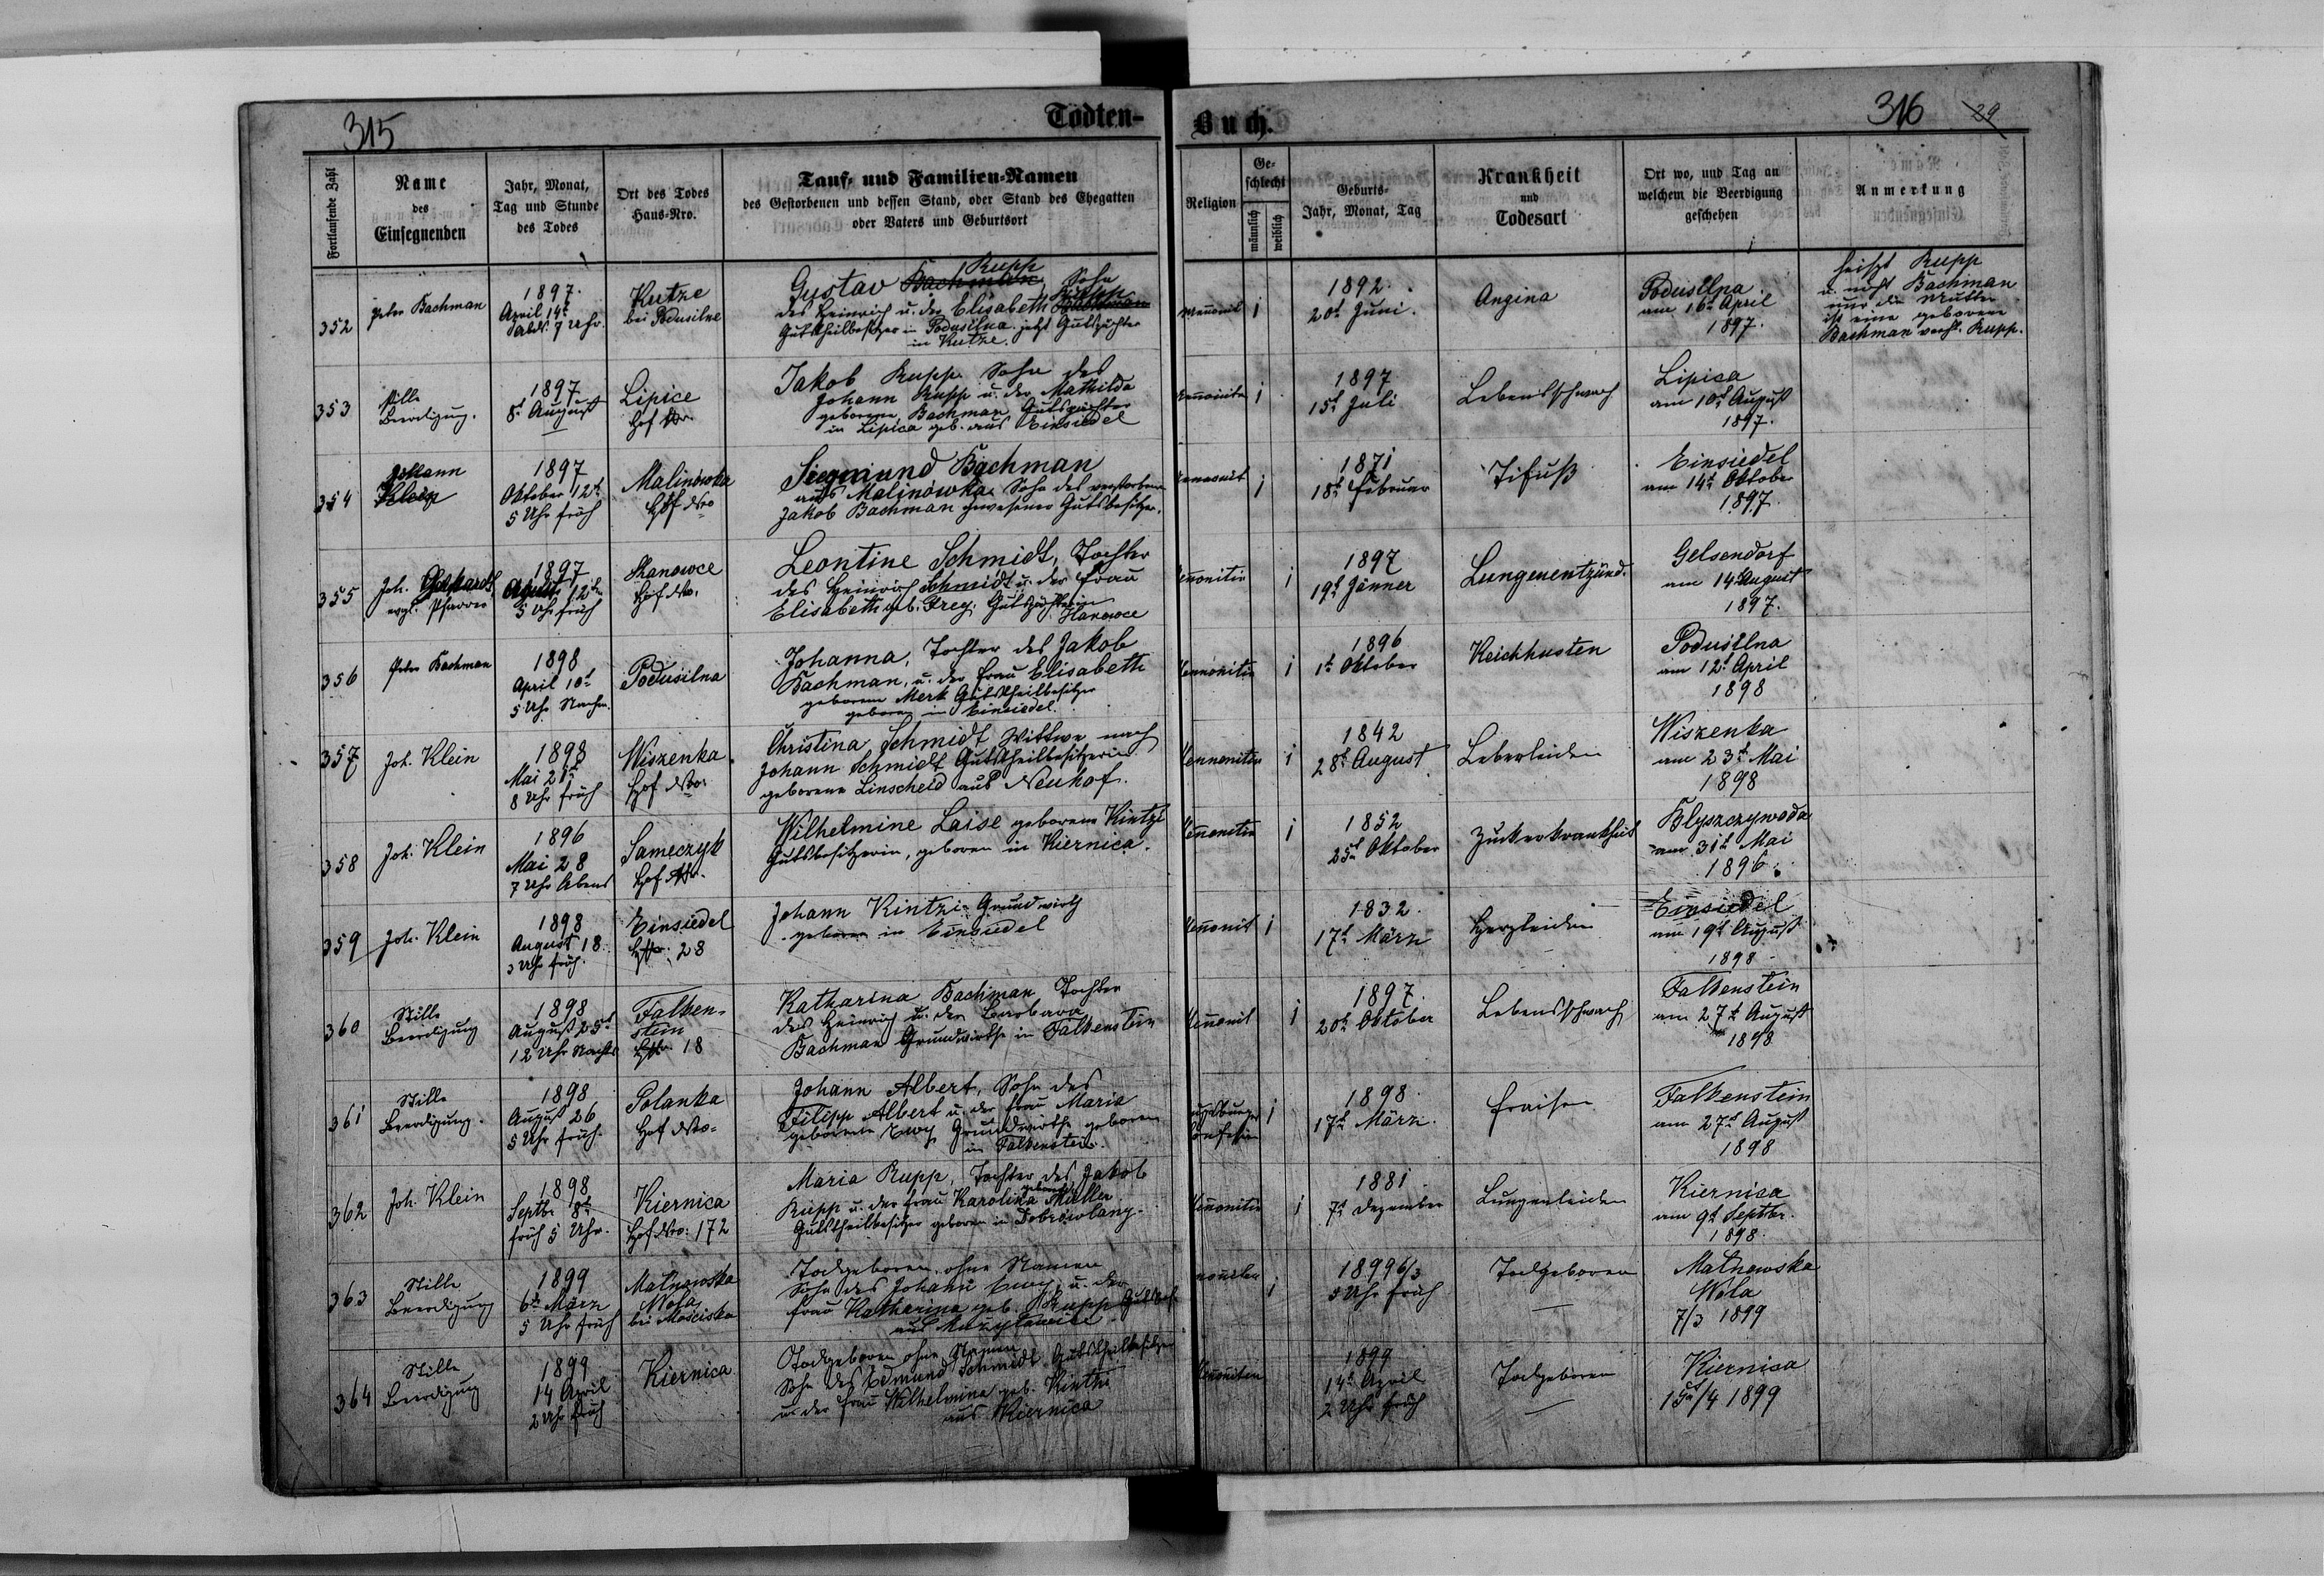 315
Todten-
Buch.
316 29
Fortlaufende Zahl
Name
des
Einsegnenden
Jahr, Monat,
Tag und Stunde
des Todes
Ort des Todes
Haus-Nro.
Tauf- und Familien-Namen
des Gestorbenen und dessen Stand, oder Stand des Ehegatten
oder Vaters und Geburtsort
Religion
Ge-
schlecht
männlich
weiblich
Geburts-
Jahr, Monat, Tag
Krankheit
und
Todesart
Ort wo, und Tag an
welchem die Beerdigung
geschehen
Anmerkung
352
Peter Bachman
1897.
April 14t
Abds. 7 Uhr.
Kutze
bei Podusilne
Rupp
Gustav Bachman, Sohn
des Heinrich u. der Elisabeth Bachman
Gutstheilbesitzer in Podusilna jetzt Gutspächter
in Kutze.
Mennonit
1
1892.
20t Juni.
Angina
Podusilna
am 16t April
1897.
heißt Rupp
u. nicht Bachman
nur die Mutter
ist eine geborene
Bachman verh. Rupp.
353
Stille
Beerdigung.
1897
8t August
Lipice
Hof Nro.
Jakob Rupp Sohn des
Johann Rupp u. der Mathilda
geborene Bachman Gutspächter
in Lipica geb. aus Einsiedel
1
1897
15t Juli
Lebensschwach
Lipica
am 10t August
1897.
354
Johann
Klein
1897
Oktober 12t
5 Uhr früh
Malinówka
Hof Nro
Siegmund Bachman
aus Malinówka Sohn des verstorbenen
Jakob Bachman gewesener Gutsbesitzer.
1
1871
18t Februar
Tifuß
Einsiedel
am 14t Oktober
1897.
355
Joh.
evgl. Pfarrer
1897
August 12t
5 Uhr früh
Hanowce
Hof Nro.
Leontine Schmidt, Tochter
des Heinrich Schmidt u. der Frau
Elisabeth geb. Frey. Gutspächter in
Hanowce
1
1897
19t Jänner
Lungenentzünd.
Gelsendorf
am 14 August
1897.
356
Peter Bachman
1898
April 10t
5 Uhr Nachm.
Podusilna
Johanna, Tochter des Jakob
Bachman, u. der Frau Elisabeth
geborene Merk Gutstheilbesitzer
geboren in Einsiedel.
Mennonitin
1
1896
1t Oktober
Keichhusten
Podusilna
am 12t April
1898
357
Joh. Klein
1898
Mai 21t
8 Uhr früh
Wiszenka
Hof Nro.
Christina Schmidt Wittwe nach
Johann Schmidt Gutstheilbesitzerin
geborene Linscheid aus Neuhof.
Mennonitin
1
1842
28t August
Leberleiden
Wiszenka
am 23t Mai
1898
358
Joh. Klein
1896
Mai 28
7 Uhr Abens
Sameczyk
Hof Nr.
Wilhelmine Laise geborene Kintzi
Gutsbesitzerin, geboren in Kiernica.
Mennonitin
1
1852
25t Oktober
Zuckerkrankheit
Blyszczywoda
am 31t Mai
1896.
359
Joh. Klein
1898
August 18.
3 Uhr früh.
Einsiedel
HNr: 28
Johann Kintzi Grundwirth
geboren in Einsiedel
Mennonit
1
1832.
17t März
Herzleiden
Einsiedel
am 19t August
1898
360
Stille
Beerdigung
1898
August 25t
12 Uhr Nachts
Falken-
stein
HNr 18
Katharina Bachman Tochter
des Heinrich u. der Barbara
Bachman Grundwirthe in Falkenstein
Mennonit
1
1897.
20t Oktober
Lebensschwach
Falkenstein
am 27t August
1898
361
Stille
Beerdigung.
1898
August 26
5 Uhr früh.
Polanka
Hof Nro.
Johann Albert, Sohn des
Filipp Albert u. der Frau Maria
geborene Ewy Grundwirthe geboren
in Falkenstein.
1
1898.
17t März.
Fraisen
Falkenstein
am 27t August
1898
362
Joh. Klein
1898
Septbr 8t
früh 5 Uhr.
Kiernica
Hof Nro: 172
Maria Rupp, Tochter des Jakob
Rupp u. der Frau Karolina geborene Müller
Gutstheilbesitzer geboren in Dobrowlany.
Mennonitin
1
1881
7t Dezember
Lungenleiden
Kiernica
am 9t Septbr.
1898.
363
Stille
Beerdigung
1899
6t März
5 Uhr früh
Matnowska
Wola
bei Mościska
Todgeboren ohne Namen
Sohn des Johann Ewy u. der
Frau Katharina geb. Rupp
1
1899 6/3
5 Uhr früh
Todgeboren
Matnowska
Wola
7/3 1899
364
Stille
Beerdigung
1899
14 April
2 Uhr früh
Kiernica
Todgeboren ohne Namen
Sohn des Edmund Schmidt Gutstheilbesitzer
u. der Frau Wilhelmina geb. Kinthi
aus Kiernica
1899
14t April
2 Uhr früh
Todgeboren
Kiernica
15t/4 1899